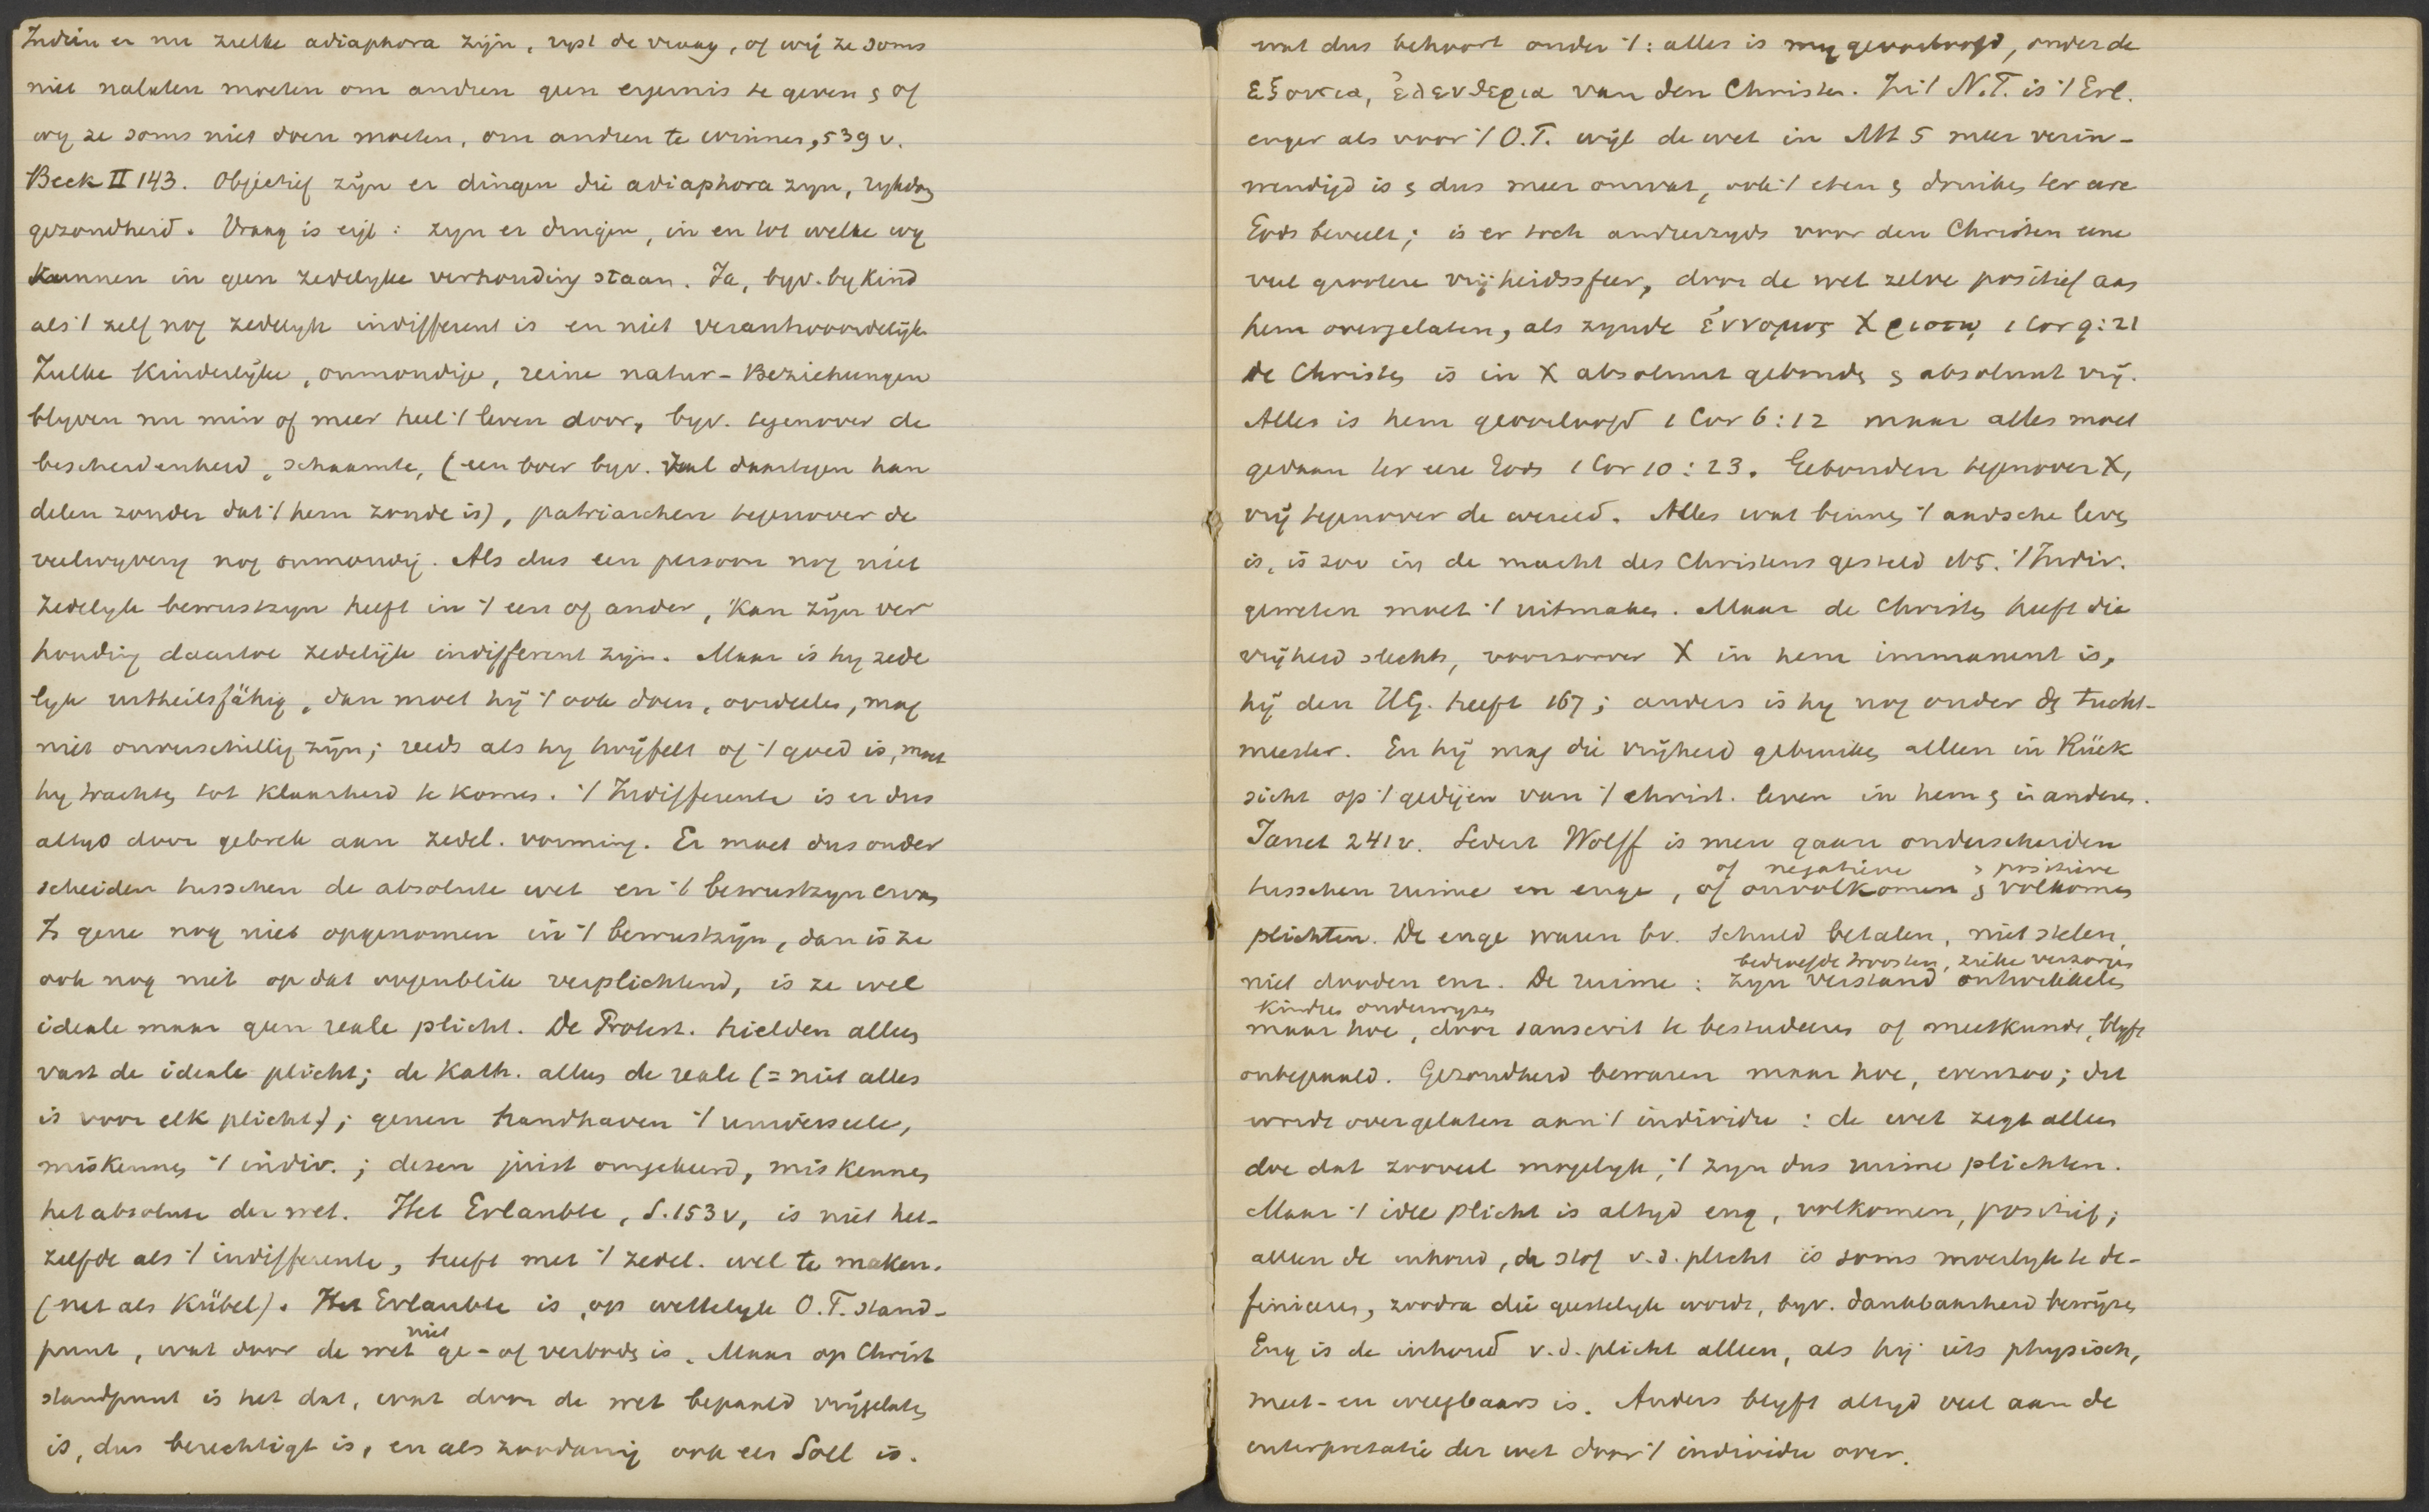 Indien er nu zulke adiaphora zijn, ryst de vraag, of wij ze soms
niet nalaten moeten om andren geen ergernis te geven & of
wy ze soms niet doen moeten, om andren te winnen, 539 v.
Beck II 143. Objectief zijn er dingen die adiaphora zyn, rykdom
gezondheid. Vraag is eigl: zyn er dingen, in en tot welke wy
kunnen in geen zedelyke verhouding staan. Ja, byv. by kind
als 't zelf nog zedelyk indifferent is en niet verantwoordelijk
Zulke kinderlijke, onmondige, reine natur-Beziehungen
blyven nu min of meer heel 't leven door, byv. tegenover de
bescheidenheid, schaamte, (een boer byv. zal daartegen han
delen zonder dat 't hem zonde is), patriarchen tegenover de
veelwyvery nog onmondig. Als dus een persoon nog niet
zedelyk bewustzyn heeft in 't een of ander, kan zijn ver
houding daartoe zedelijk indifferent zijn. Maar is hy zede
lyk urtheilsfähig, dan moet hij 't ook doen, oordeelen, mag
niet onverschillig zijn; reeds als hy twijfelt of 't goed is, moet
hy trachten tot klaarheid te komen. 't Indifferente is er dus
altyd door gebrek aan zedel. vorming. Er moet dus onder
scheiden tusschen de absolute wet en 't bewustzyn ervan
Is gene nog niet opgenomen in 't bewustzijn, dan is ze
ook nog niet op dat oogenblik verplichtend, is ze wel
ideale maar geen reale plicht. De Protest. hielden alleen
vast de ideale plicht; de Kath. alleen de reale (= niet alles
is voor elk plicht); genen handhaven 't universeele,
miskennen 't indiv.; dezen juist omgekeerd, miskennen
het absolute der wet. Het Erlaubte, S. 153 v, is niet het-
zelfde als 't indifferente, heeft met 't zedel. wel te maken.
(net als Kübel). Het Erlaubte is, op wettelyk O.T. stand-
punt, wat door de wet niet ge- of verboden is. Maar op Christ
standpunt is het dat, wat door de wet bepaald vrijgelaten
is, dus berechtigt is, en als zoodanig ook een Soll is.
wat dus behoort onder 't: alles is my geoorloofd, onder de
εξουσια, ἐλευθερια van den Christen. In 't N.T. is 't Erl.
enger als voor 't O.T. wijl de wet in Mt 5 meer verin-
wendigd is & dus meer omvat, ook 't eten & drinken ter eere
Gods beveelt; is er toch anderzyds voor den Christen eene
veel grootere vrijheidssfeer, door de wet zelve positief aan
hem overgelaten, als zynde ἐννομος Χριστῳ 1 Cor 9:21
de Christen is in X absoluut gebonden & absoluut vrij.
Alles is hem geoorloofd 1 Cor 6:12 maar alles moet
gedaan ter eere Gods 1 Cor 10:23. Gebonden tegenover X,
vrij tegenover de wereld. Alles wat binnen 't aardsche leven
is, is zoo in de macht des Christens gesteld 't Indiv.
geweten moet 't uitmaken. Maar de Christen heeft die
vrijheid slechts, voorzoover X in hem immanent is,
hij den H.G. heeft 167; anders is hy nog onder den tucht-
meester. En hij mag die vrijheid gebruiken alleen in Rück
sicht op 't gedijen van 't christ. leven in hem & in anderen.
Janet 241 v. Sedert Wolff is men gaan onderscheiden
of negatieve & positieve
tusschen ruime en enge, of onvolkomen & volkomen
plichten. De enge waren bv. schuld betalen, niet stelen,
bedroefde troosten, zieke verzorgen
niet dooden enz. De ruime: zyn verstand ontwikkelen
kindren onderwyzen
maar hoe, door sanscrit te bestudeeren of meetkunde, blyft
onbepaald. Gezondheid bewaren maar hoe, evenzoo; dit
wordt overgelaten aan 't individu: de wet zegt alleen
doe dat zooveel mogelyk, 't zyn dus ruime plichten.
Maar 't idee plicht is altyd eng, volkomen, positief;
alleen de inhoud, de stof v.d. plicht is soms moeilyk te de-
finieren, zoodra die geestelyk wordt, byv. dankbaarheid bewijzen
Eng is de inhoud v.d. plicht alleen, als hij iets physisch,
meet- en weegbaars is. Anders blyft altyd veel aan de
interpretatie der wet door 't individu over.